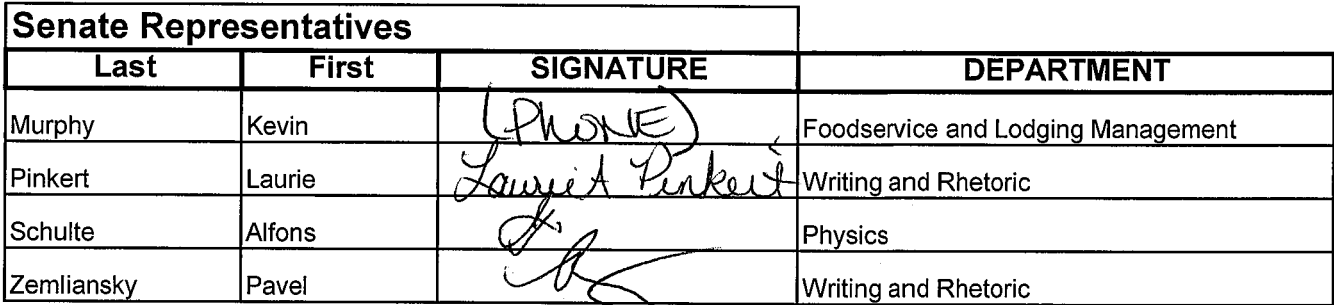 Senate Representatives
Last First SIGNATURE DEPARTMENT
Murphy Kevin (PHONE) Foodservice and Lodging Management
Pinkert Laurie Laurie A Pinkert Writing and Rhetoric
Schulte Alfons Physics
Zemliansky Pavel Writing and Rhetoric